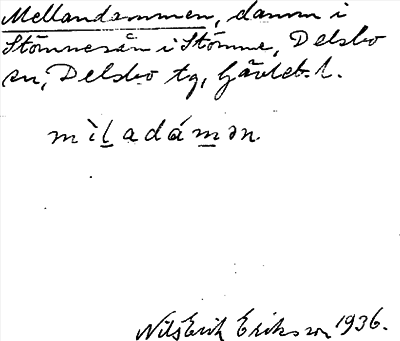 Mellandammen, damm i
Stömnesån i Stömne, Delsbo
sn, Delsbo tg, Gävleb. l.
mìl̲adám̲ən.
Nils Erik Eriksson 1936.